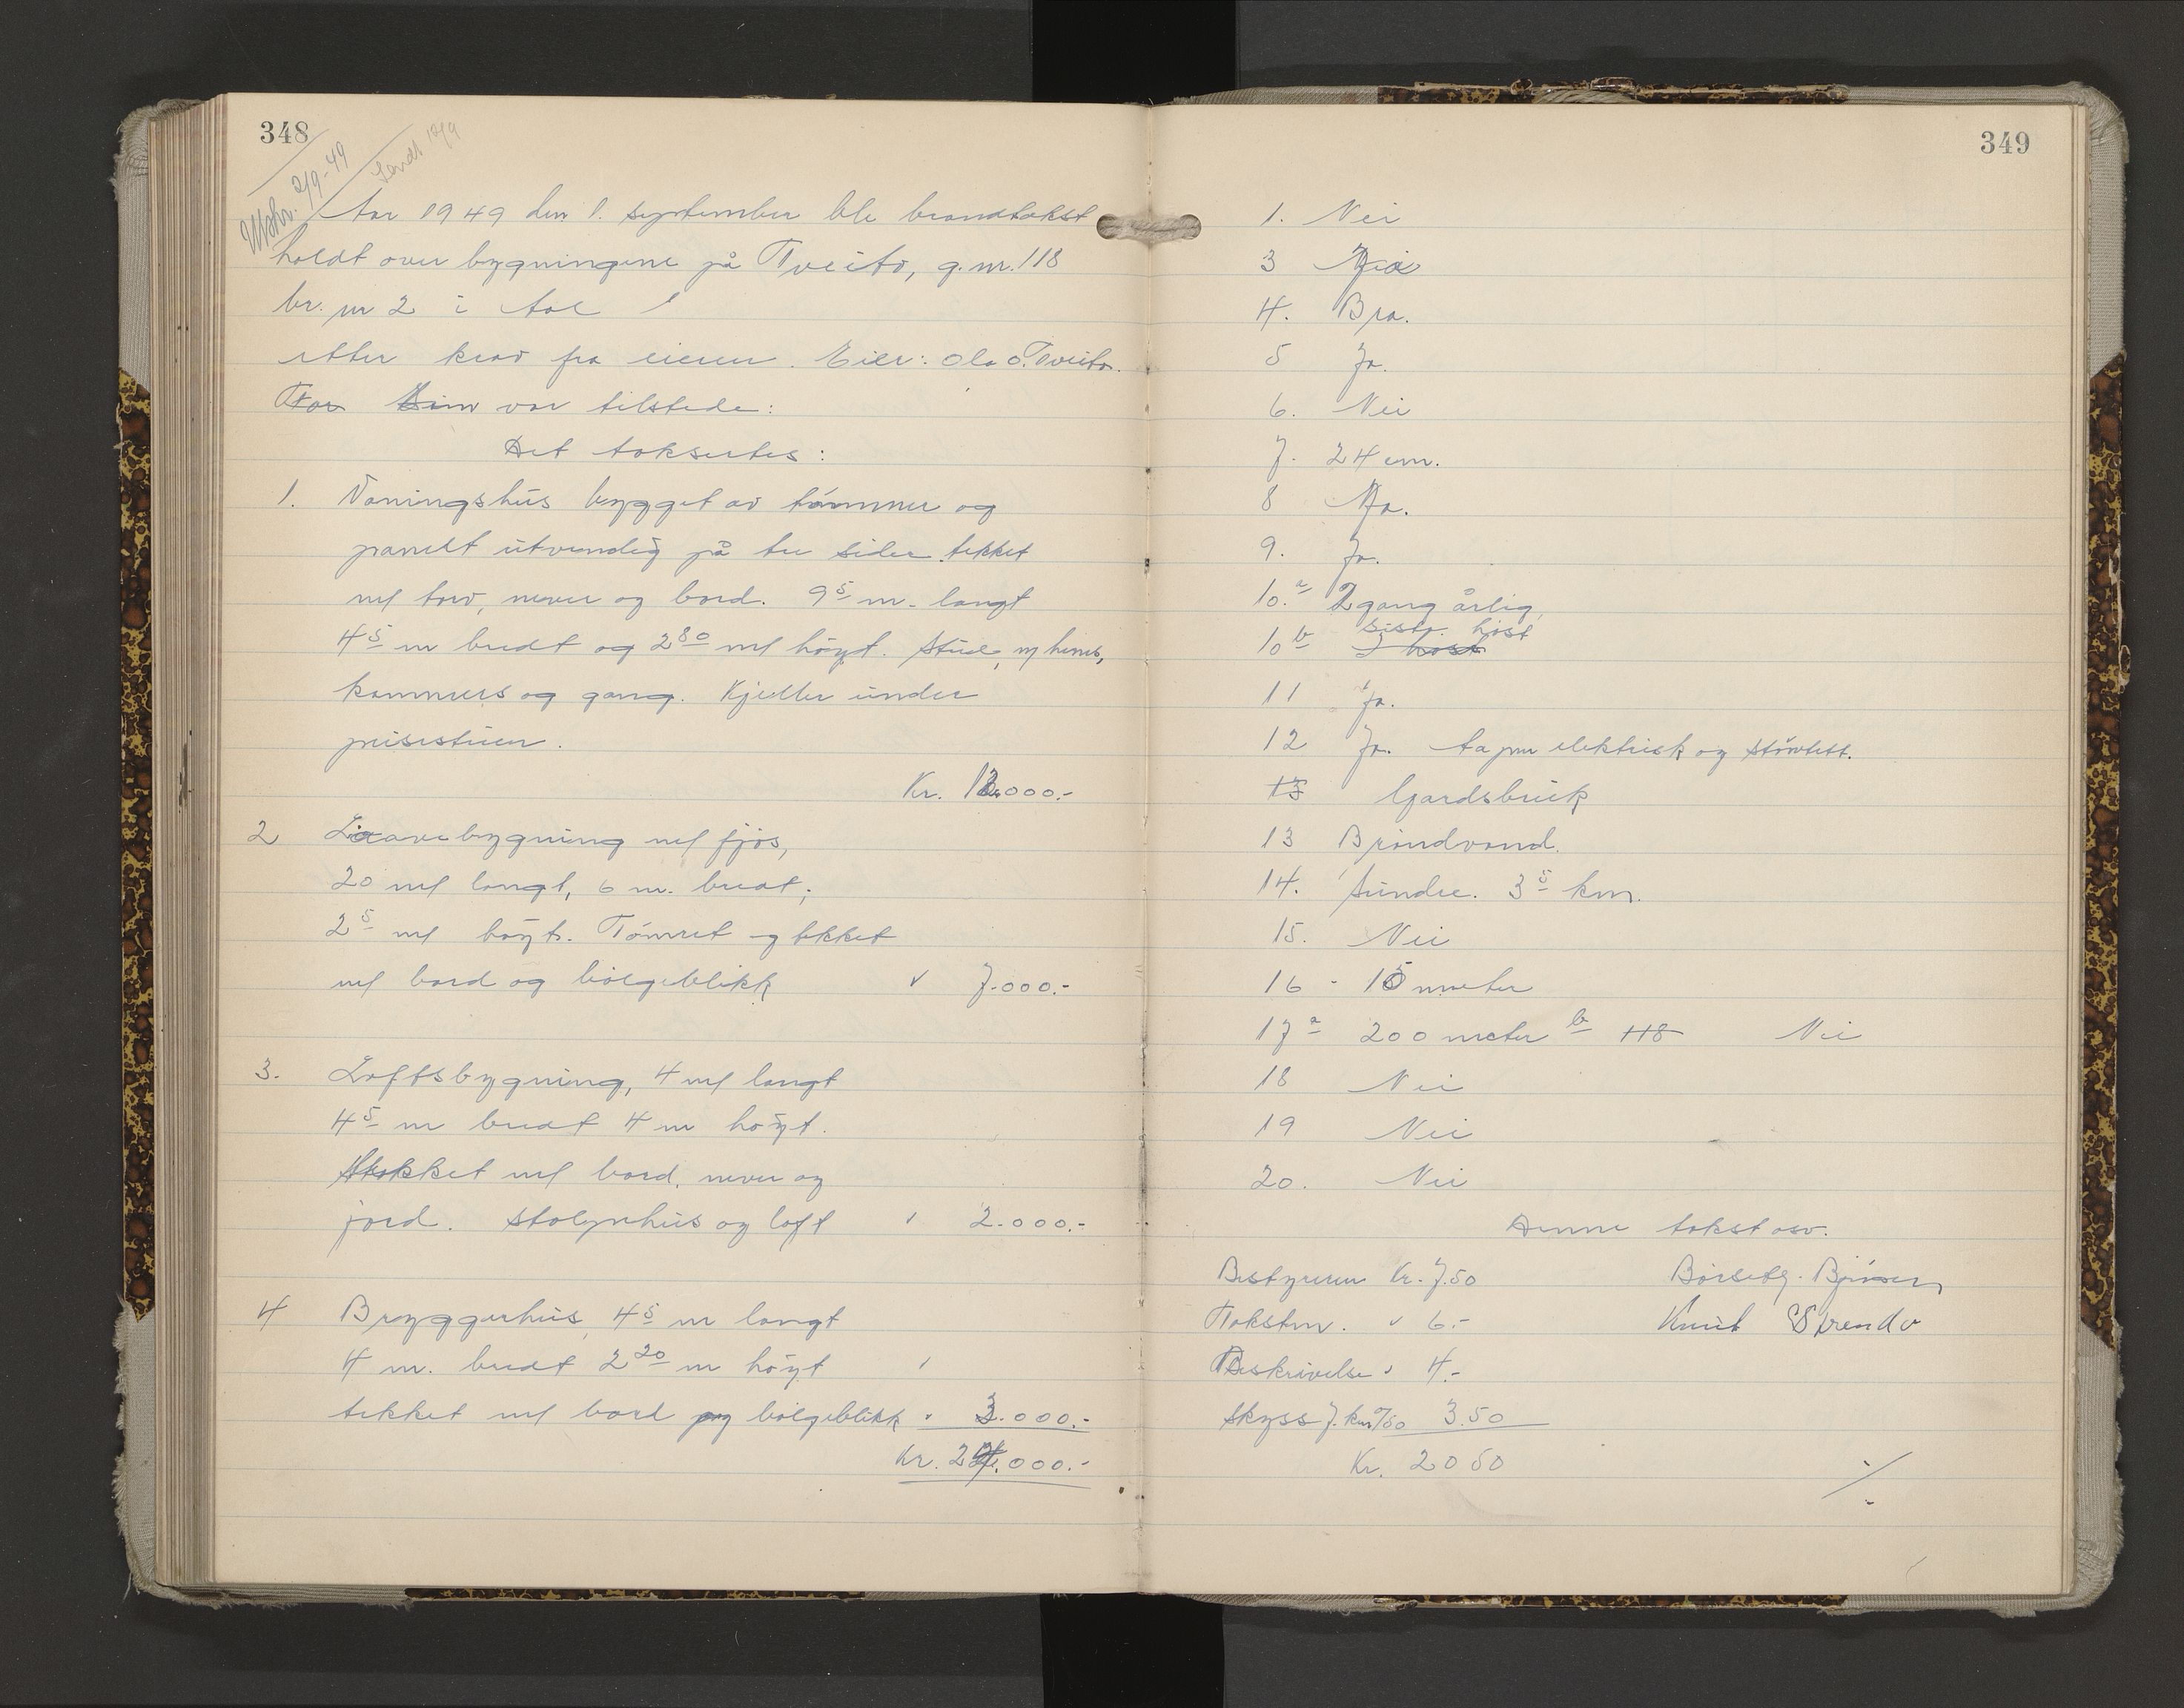 348
Utskr. 2/9-49
Sendt 12/9
Aar 1949 den 1. september ble brandtakst
holdt over bygningene på Tveito, g.nr. 118
br. nr 2 i Aal
etter krav fra eieren. Eier: Ola O. Tveito.
var tilstede:
Det taksertes:
1. Vaningshus bygget av tømmer og
panelt utvendig på tre sider. tekket
m/ torv, never og bord. 9 5 m. langt
4 5 m bredt og 2 80 m/ høyt. Stue, m/ hems,
kammers og gang. Kjeller under
peisestuen.
Kr. 12.000.-
2 Laavebygning m/ fjøs,
20 m/ langt, 6 m. bredt;
2 5 m/ høyt. Tømret og tekket
m/ bord og bølgeblikk " 7.000.-
3. Loftsbygning, 4 m/ langt
4 5 m bredt 4 m høyt.
tekket m/ bord, never og
jord. Stolpehus og loft " 2.000.-
4 Bryggerhus, 4 5 m langt
4 m. bredt 2 20 m høyt
tekket m/ bord og bølgeblikk " 3.000.-
Kr. 24.000.-
349
1. Nei
3 Ja
4. Bra.
5 Ja.
6. Nei
7. 24 cm.
8 Ja.
9. Ja.
10. a 2 gang årlig,
10 b sist. høst
11 Ja.
12 Ja. elektrisk og støvtett.
13 Gardsbruk
13 Brøndvand.
14. Sundre. 3 5 km.
15. Nei
16 - 15 meter
17 a 200 meter b 118 Nei
18 Nei
19 Nei
20. Nei
Denne takst osv.
Bestyreren Kr. 7.50
Takstm. " 6.-
Knut Strendo
Beskrivelse " 4.-
Skyss 7. km a/50 3.50
Kr. 20 50